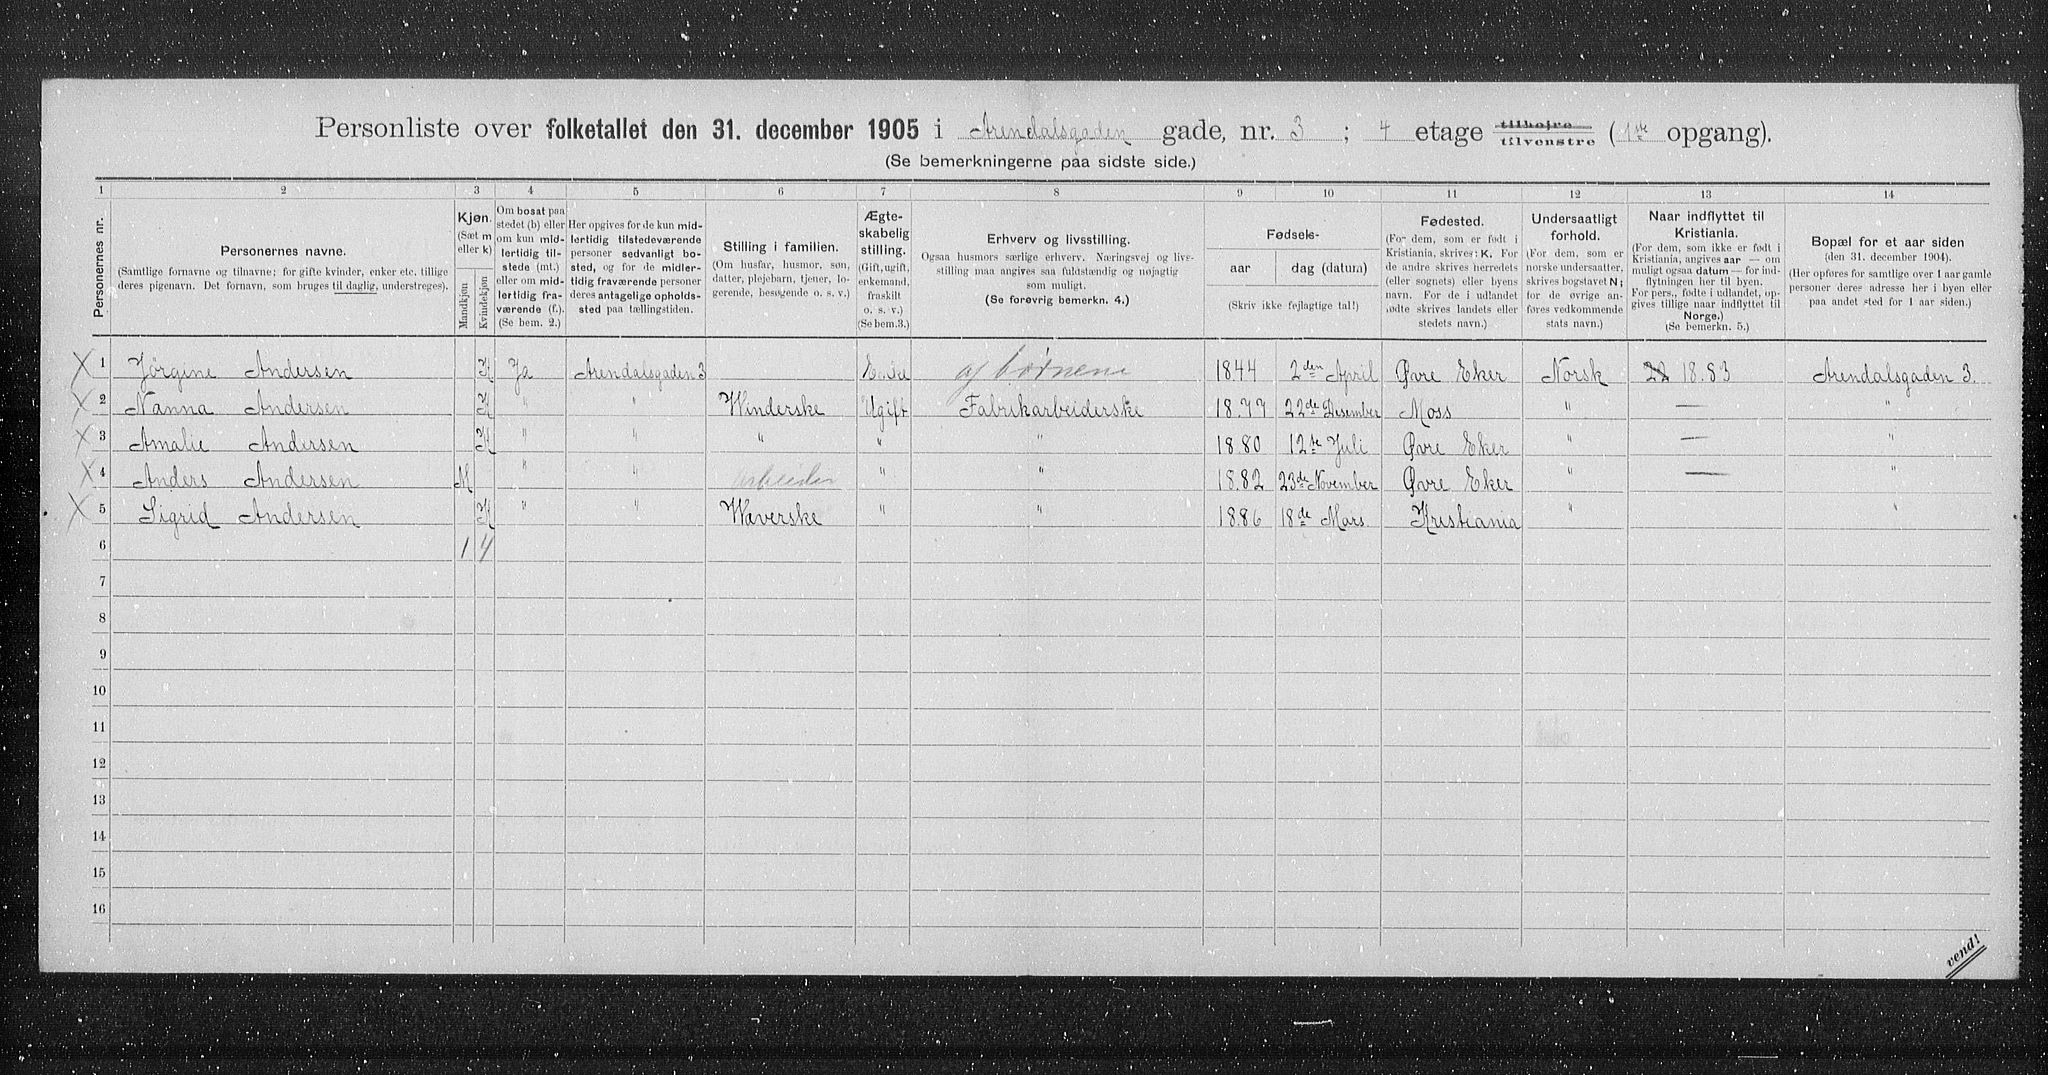 Personliste over folketallet den 31. december 1905 i Arendalsgaden gade, nr. 3 ; 4 etage tilhøjre tilvenstre (1ste opgang).
(Se bemerkningerne paa sidste side.)
1 2 3 4 5 6 7 8 9 10 11 12 13 14
Personernes nr.
Personernes navne.
(Samtlige fornavne og tilnavne; for gifte kvinder, enker etc. tillige
deres pigenavn. Det fornavn, som bruges til daglig, understreges).
Kjøn.
(Sæt m
eller k)
Mandkjøn
Kvindekjøn
Om bosat paa
stedet (b) eller
om kun mid-
lertidig til-
stede (mt.)
eller om mid-
lertidig fra-
værende (f.).
(Se bem. 2.)
Her opgives for de kun mid-
lertidig tilstedeværende
personer sedvanligt bo-
sted, og for de midler-
tidig fraværende personer
deres antagelige opholds-
sted paa tællingstiden.
Stilling i familien.
(Om husfar, husmor, søn,
datter, plejebarn, tjener, lo-
gerende, besøgende o. s. v.)
Ægte-
skabelig
stilling.
(Gift, ugift,
enkemand,
fraskilt
o. s. v.)
(Se bem. 3.)
Erhverv og livsstilling.
Ogsaa husmors særlige erhverv. Næringsvej og livs-
stilling maa angives saa fuldstændig og nøjagtig
som muligt.
(Se forøvrig bemerkn. 4.)
Fødsels-
aar dag (datum)
(Skriv ikke fejlagtige tal!)
Fødested.
(For dem, som er født i
Kristiania, skrives: K. For
de andre skrives herredets
(eller sognets) eller byens
navn. For de i udlandet
fødte skrives landets eller
stedets navn.)
Undersaatligt
forhold.
(For dem, som er
norske undersaatter,
skrives bogstavet N;
for de øvrige an-
føres vedkommende
stats navn.)
Naar indflyttet til
Kristiania.
(For dem, som ikke er født i
Kristiania, angives aar — om
muligt ogsaa datum — for ind-
flytningen her til byen.
For pers., fødte i udlandet, op-
gives tillige naar indflyttet til
Norge.)
(Se bemerkn. 5.)
Bopæl for et aar siden
(den 31. december 1904).
(Her opføres for samtlige over 1 aar gamle
personer deres adresse her i byen eller
paa andet sted for 1 aar siden.)
1 Jørgine Andersen K Ja Arendalsgaden 3 Enke af børnene 1844 2den April Øvre Eker Norsk 1883 Arendalsgaden 3.
2 Nanna Andersen K " " Winderske Ugift Fabrikarbeiderske 1877 22de Desember Moss " — "
3 Amalie Andersen K " " " " " 1880 12te Juli Øvre Eker " — "
4 Anders Andersen M " " arbeider " " 1882 23de November Øvre Eker " — "
5 Sigrid Andersen K " " Wæverske " " 1886 18de Mars Kristiania " "
6 1 4
7
8
9
10
11
12
13
14
15
16
vend!